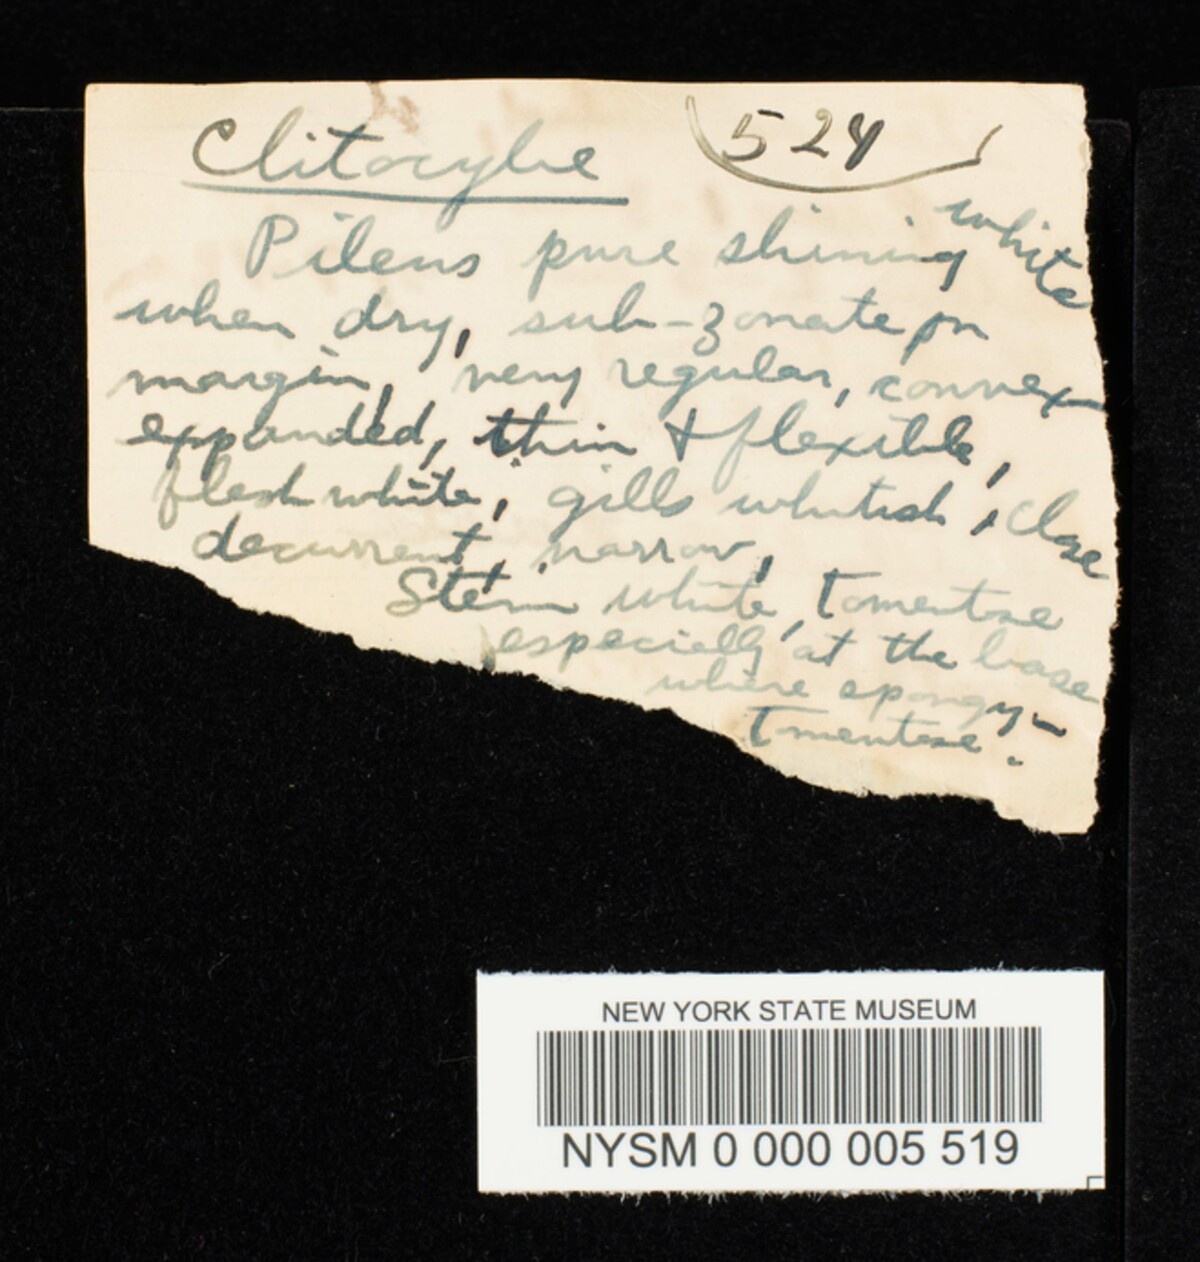 Clitocybe 524
Pileus pure shining white
when dry, sub-zonate on
margin, very regular, convex-
expanded, thin + flexible,
flesh white, gills whitish, close
decurrent, narrow,
Stem white, tomentose
especially at the base
where spongy-
tomentose.
NEW YORK STATE MUSEUM
NYSM 0 000 005 519